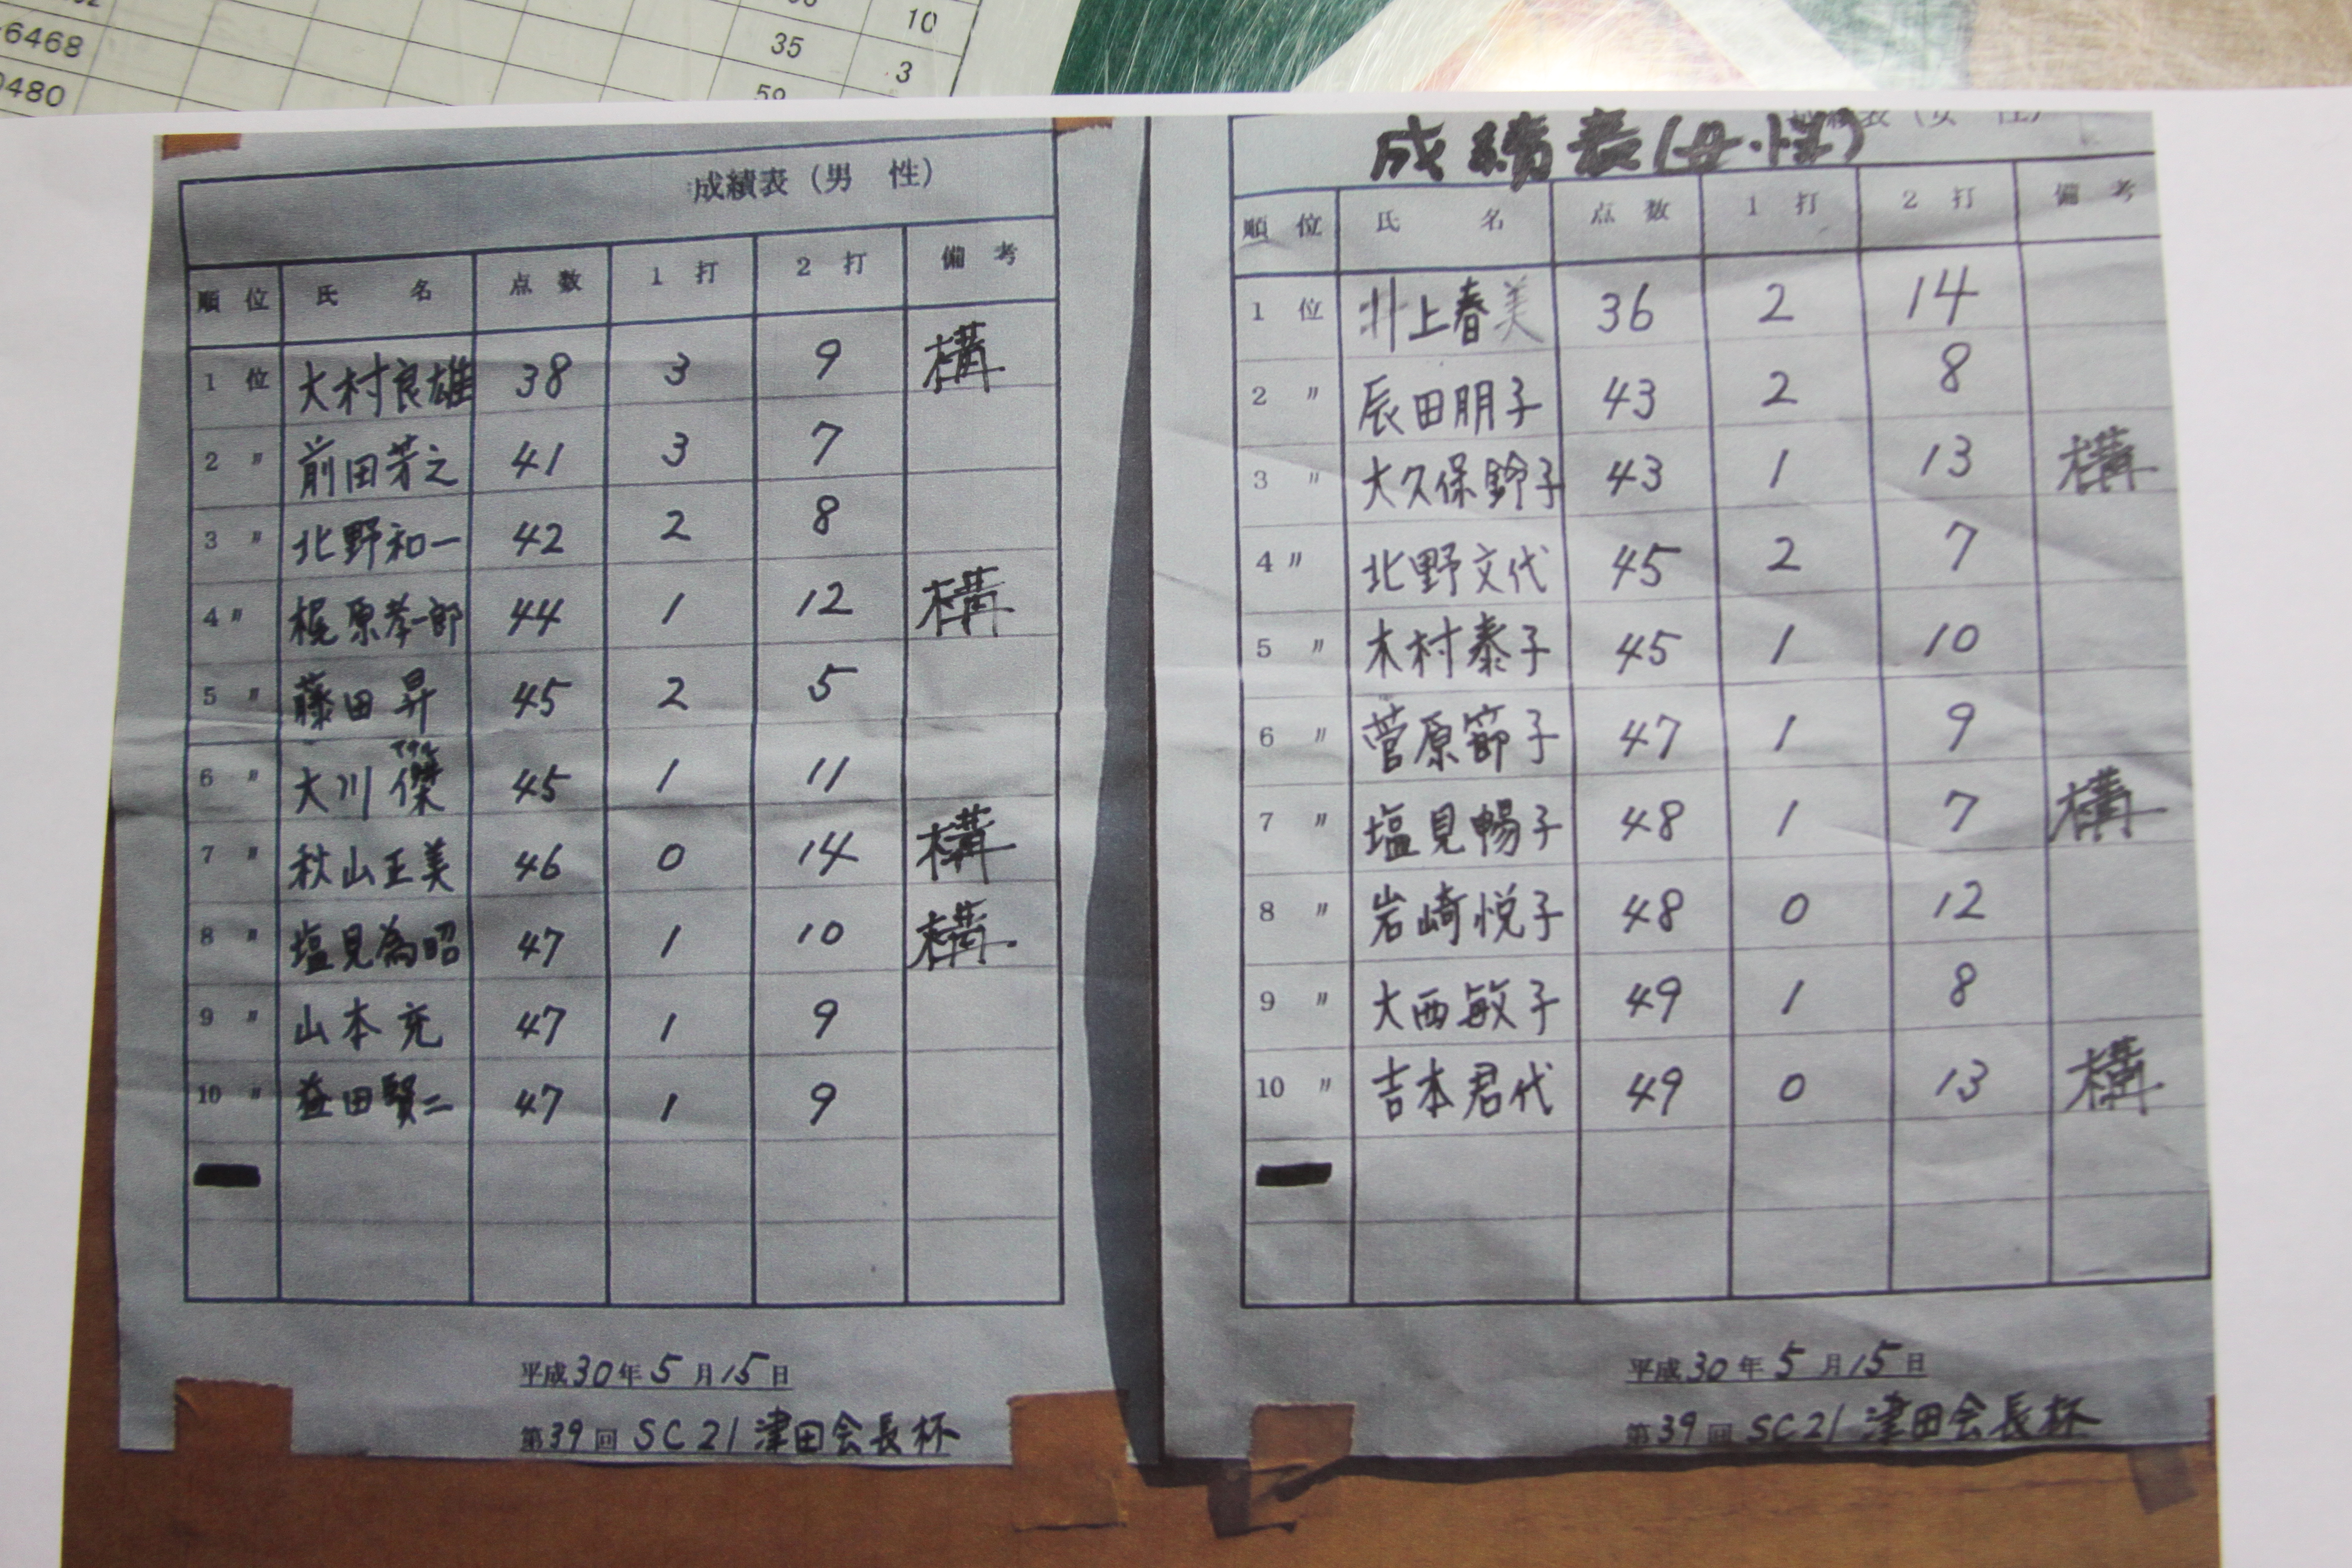 10
6468
35
3
0480
59
成績表（男 性）
順 位 氏 名 点 数 1 打 2 打 備 考
1 位 大村良雄 38 3 9 構
2 〃 前田芳之 41 3 7
3 〃 北野和一 42 2 8
4 〃 梶原孝一郎 44 1 12 構
5 〃 藤田昇 45 2 5
6 〃 大川傑 45 1 11
7 〃 秋山正美 46 0 14 構
8 〃 塩見為昭 47 1 10 構
9 〃 山本充 47 1 9
10 〃 益田賢二 47 1 9
平成30年5月15日
第39回 SC21津田会長杯
成績表(女性)
順 位 氏 名 点 数 1 打 2 打 備 考
1 位 井上春美 36 2 14
2 〃 辰田朋子 43 2 8
3 〃 大久保鈴子 43 1 13 構
4 〃 北野文代 45 2 7
5 〃 木村泰子 45 1 10
6 〃 菅原節子 47 1 9
7 〃 塩見暢子 48 1 7 構
8 〃 岩崎悦子 48 0 12
9 〃 大西敏子 49 1 8
10 〃 吉本君代 49 0 13 構
平成30年5月15日
第39回 SC21津田会長杯